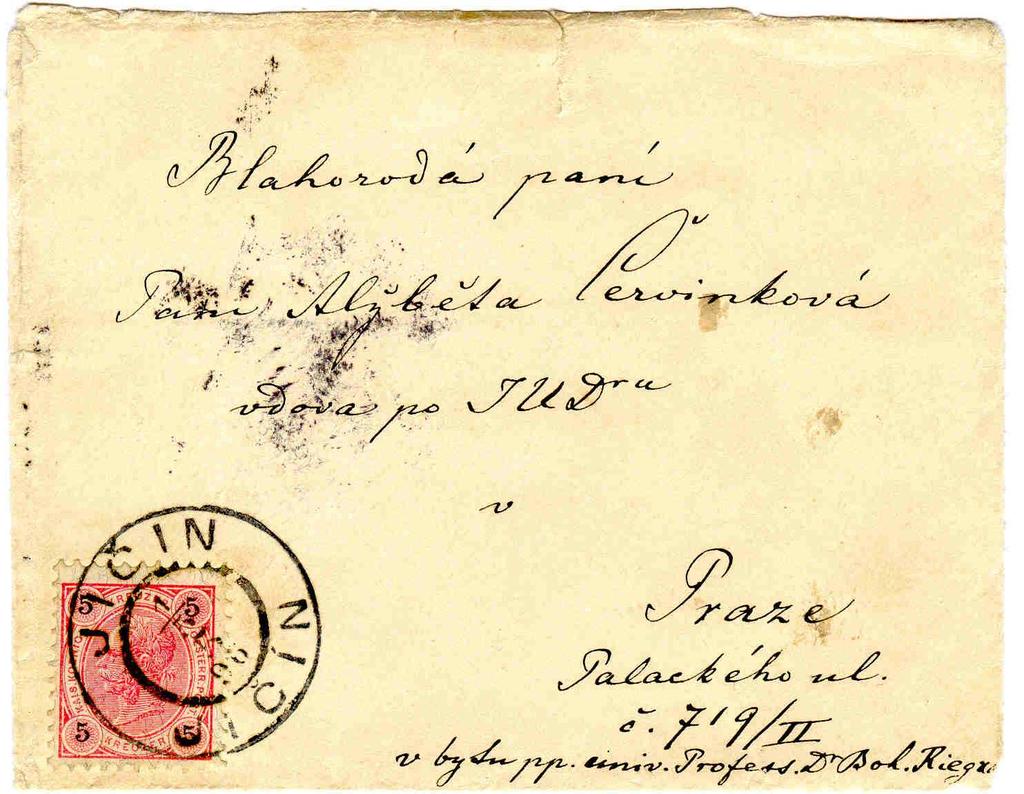 Blahorodá paní
Paní Alžběta Červinková
vdova po JUDru
v
Praze
Palackého ul.
č. 719/II
v bytu pp. univ. Profess. Dr Boh. Riegra
JIČIN JIČÍN
5 KREUZER 5
5 KREUZER 5